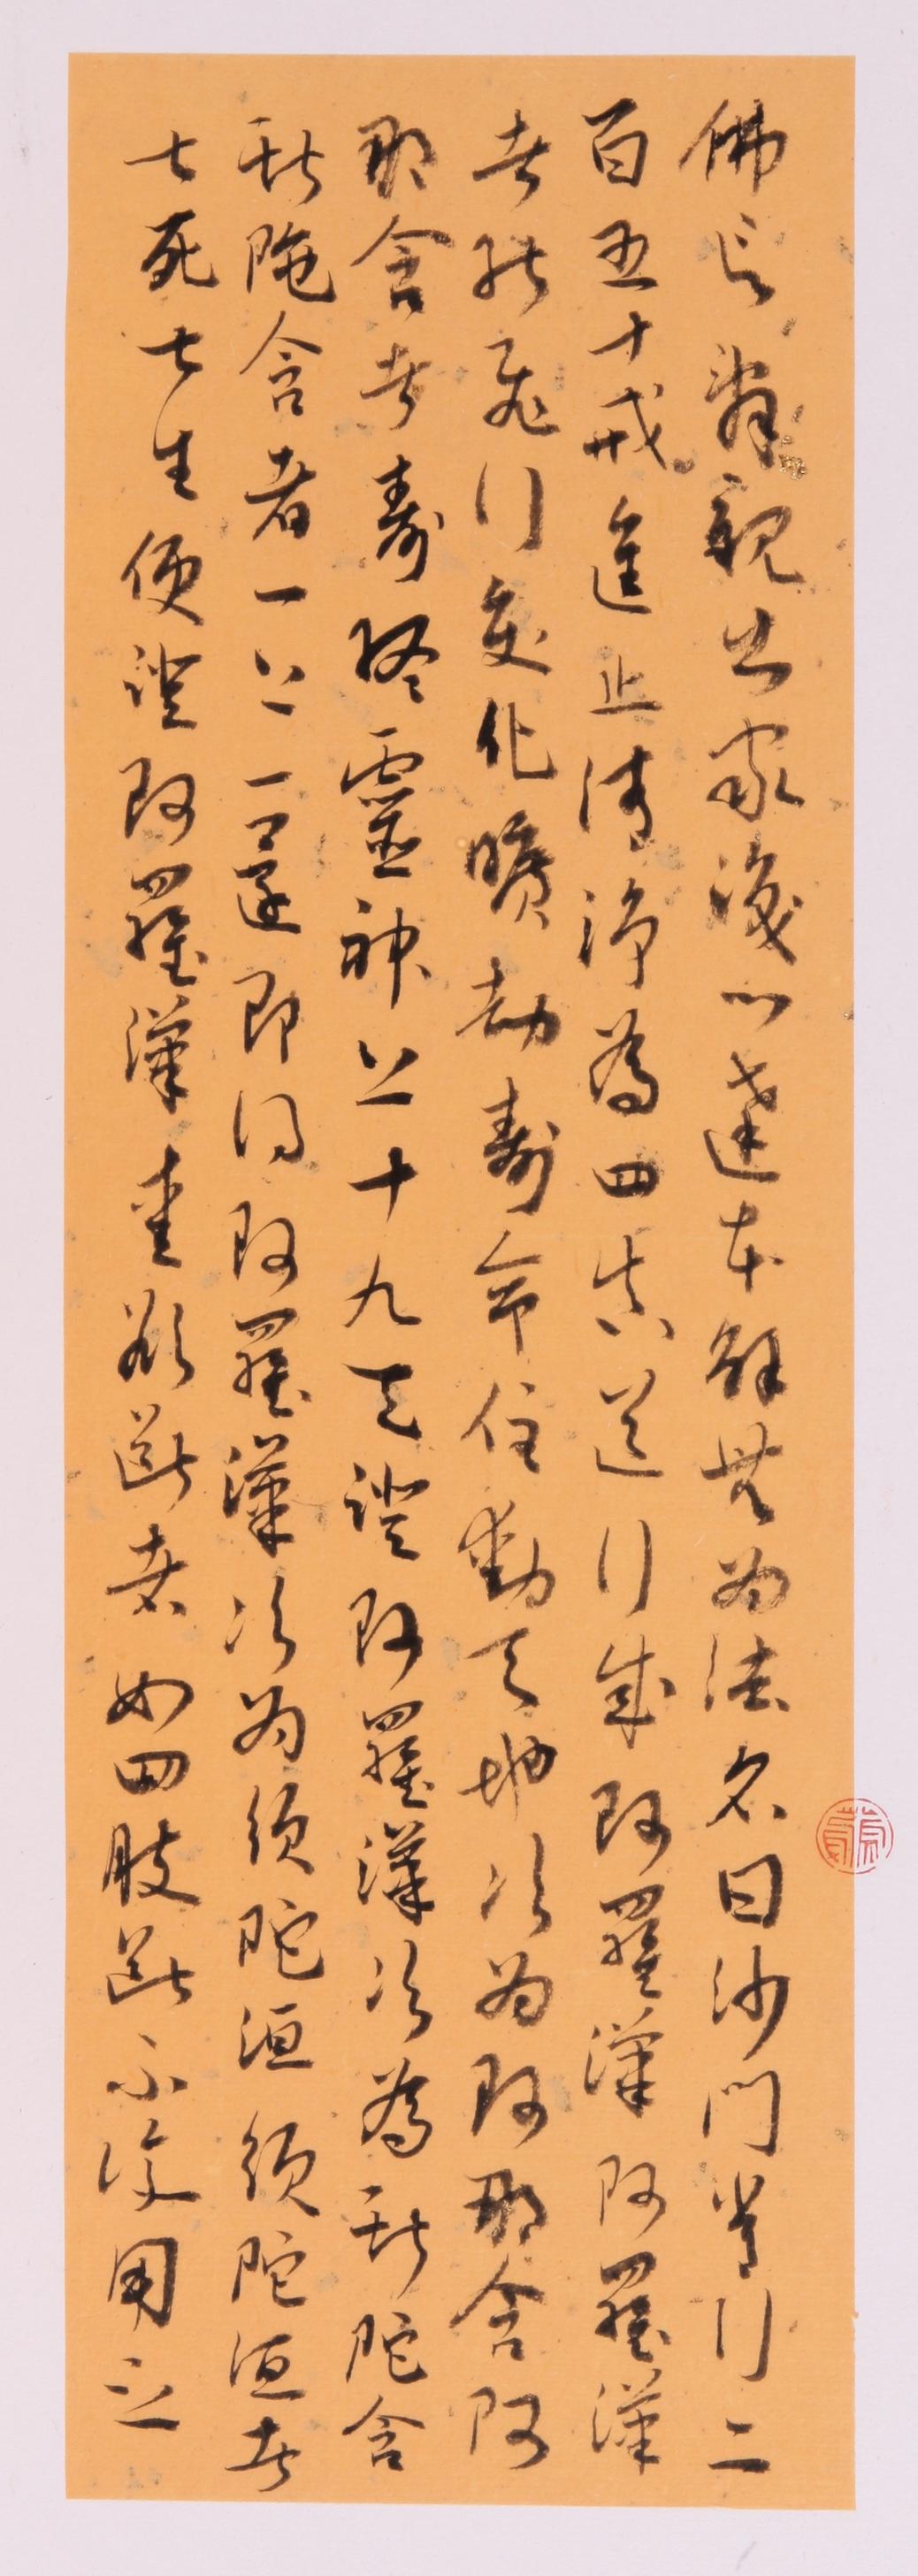 佛言辭親出家識心達本解無為法名曰沙門常行二
百五十戒進止清淨為四真道行成阿羅漢阿羅漢
者能飛行變化曠劫壽命住動天地次為阿那含阿
那含者壽終靈神上十九天證阿羅漢次為斯陀含
斯陀含者一上一還即得阿羅漢次為須陀洹須陀洹者
七死七生便證阿羅漢愛欲斷者如四肢斷不復用之